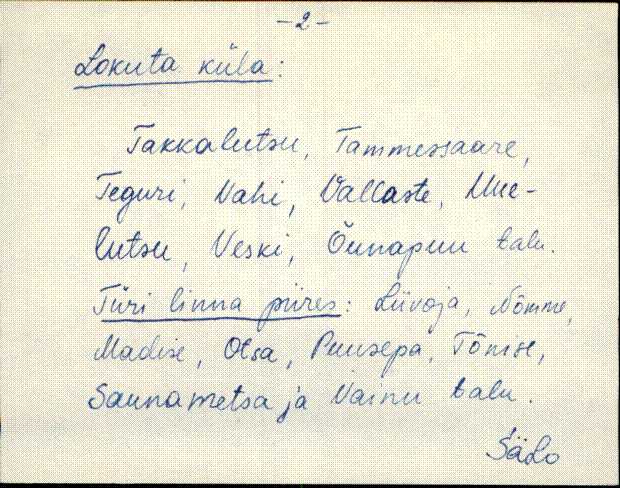 -2-
Lokuta küla:
Takkalutsu, Tammessaare,
Teguri, Vahi, Vallaste, Uue-
lutsu, Veski, Õunapuu talu.
Türi linna piires: Liivoja, Nõmme,
Madise, Otsa, Puusepa, Tõnise,
Saunametsa ja Vainu talu.
SäLo